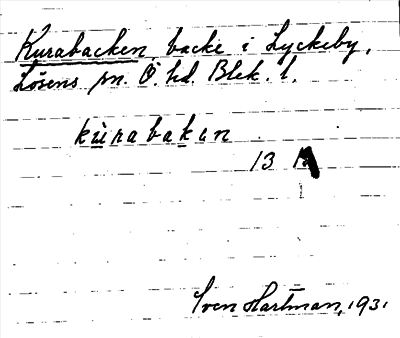 Kurabacken, backe i Lyckeby,
Lösens sn. Ö. hd. Blek. l.
kùrabakən
13
Sven Hartman, 1931